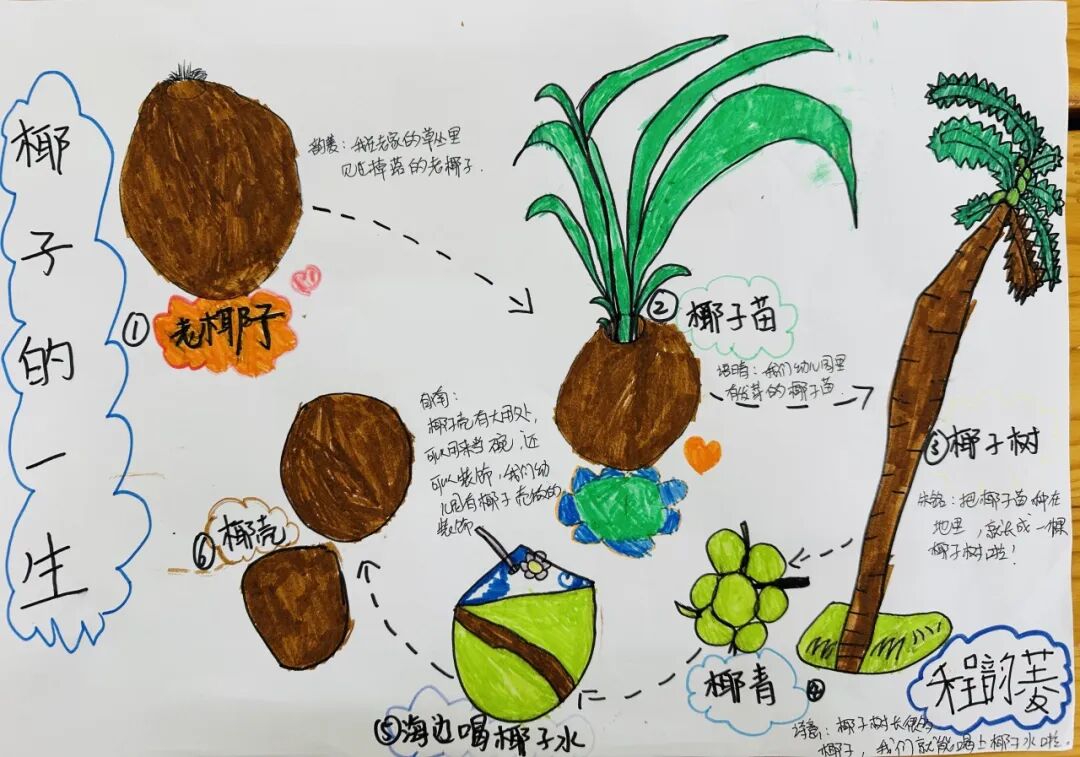 椰子的一生
①
老椰子
我在老家的草丛里
见过掉落的老椰子.
②
椰子苗
我们幼儿园里
有发芽的椰子苗
③椰子树
把椰子苗种在
地里，就长成一棵
椰子树啦！
④
椰青
椰子树长很多
椰子，我们就能喝上椰子水啦.
⑤海边喝椰子水
⑥
椰壳
椰子壳有大用处，
可以用来当碗，还
可以装饰，我们幼
儿园有椰子壳做的
装饰
程韵菱